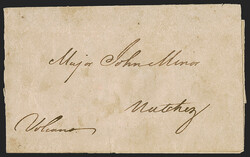 Major John Minor
Natchez
Volcano